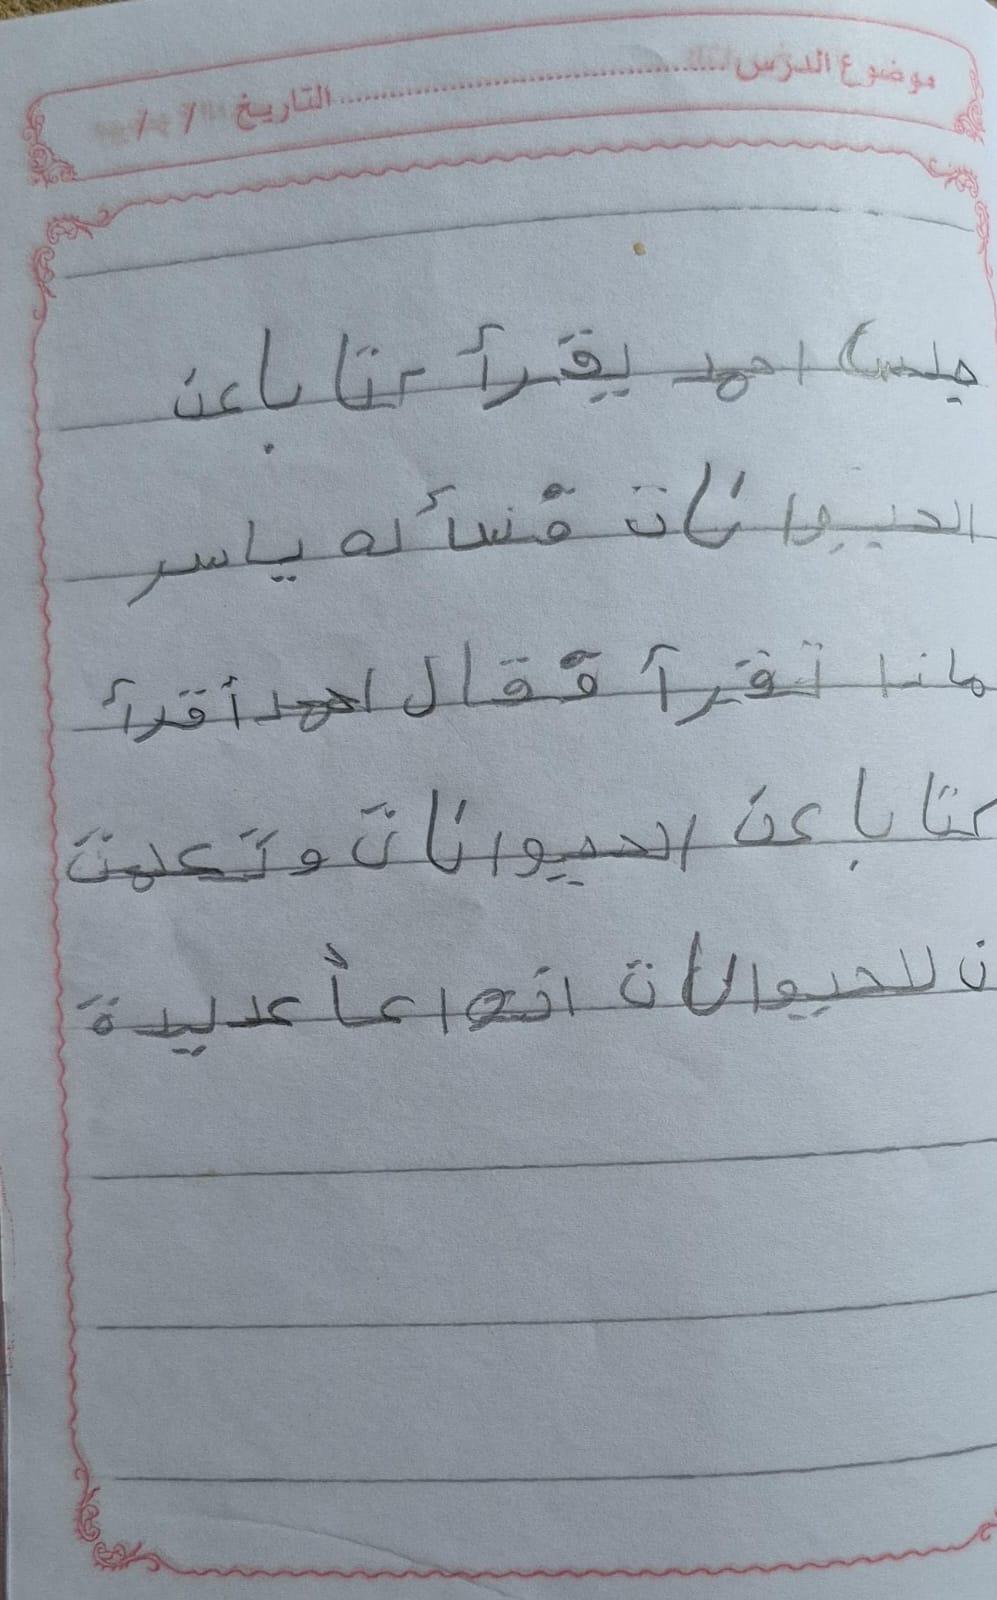 موضوع الدرس ........................ التاريخ / /
جلس احمد يقرأ كتا باعن
الحيوانات فسأله ياسر
ماذا تقرأ فقال احمد أقرأ
كتا باعن الحيوانات وتعلمت
ن للحيوانات انواعاً عديدة